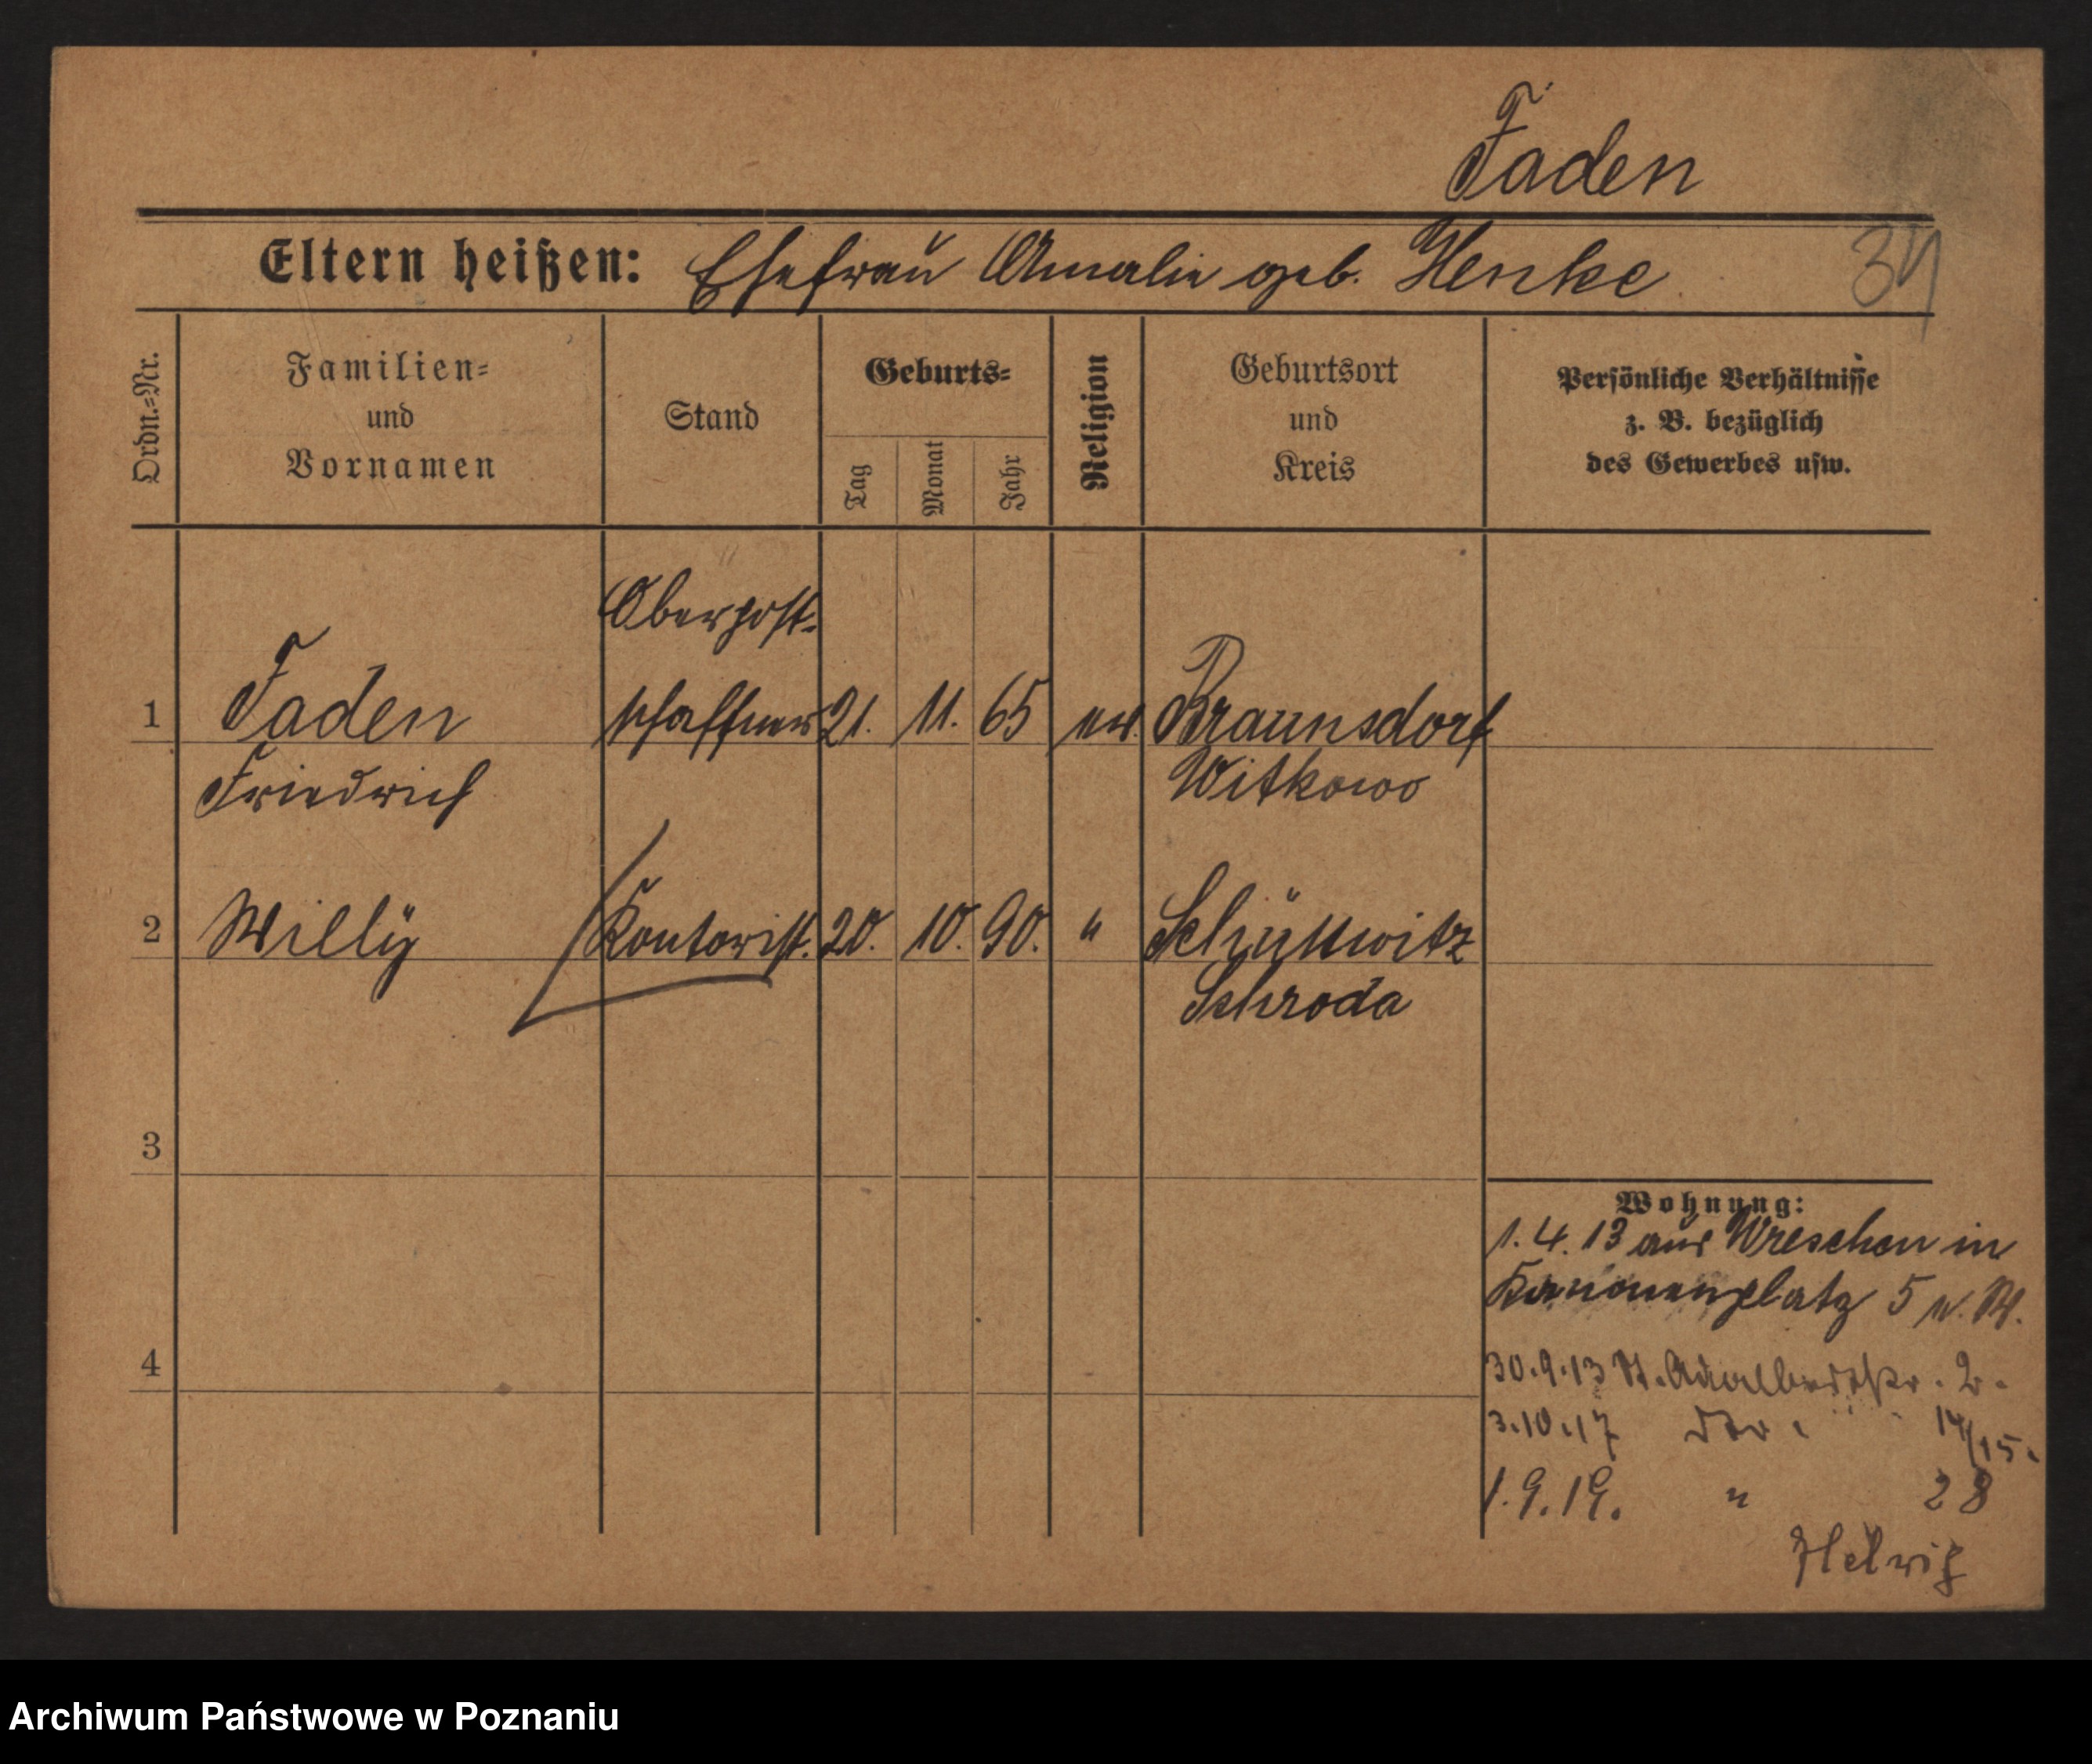 Faden
Eltern heißen: Ehefrau Amalie geb. Henke
34
Ordn.-Nr.
Familien- und Vornamen
Stand
Geburts-
Tag
Monat
Jahr
Religion
Geburtsort und Kreis
Persönliche Verhältnisse z. B. bezüglich des Gewerbes usw.
Oberpost-
1 Faden schaffner 21. 11. 65 ev. Braunsdorf
Friedrich Witkowo
2 Willy Kontorist. 20. 10. 90. "
Schroda
3
4
Wohnung:
1. 4. 13 aus Wreschen in
Kanonenplatz 5 u. W.
30.9.13 St. Adalbertstr. 2.
3.10.17 14/15.
1.9.19. " 28
Helwig
Archiwum Państwowe w Poznaniu